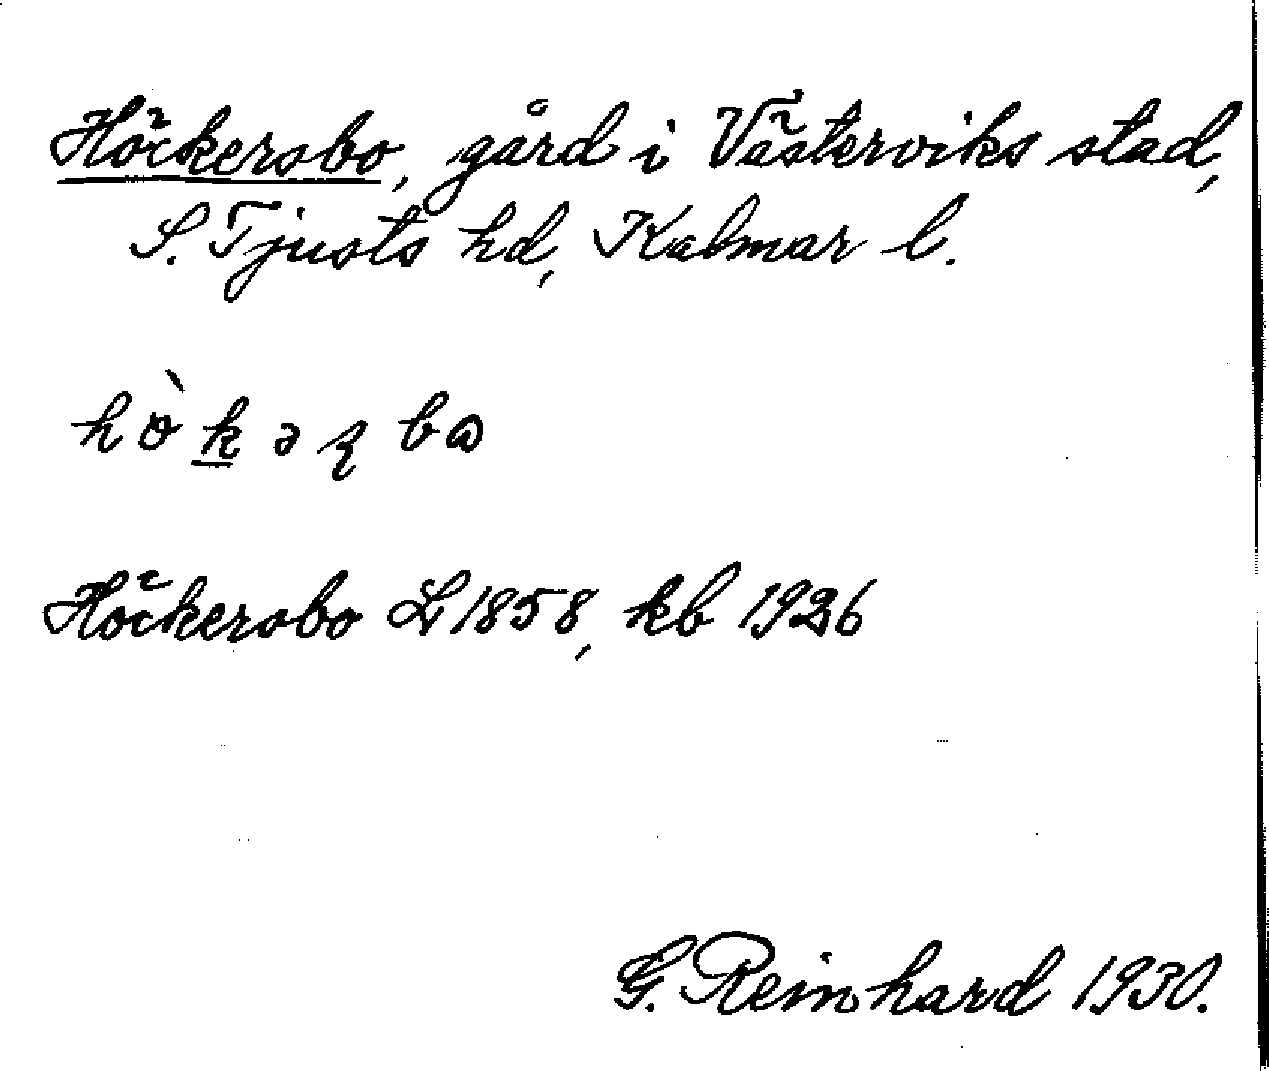 Höckersbo, gård i Västerviks stad,
S. Tjusts hd, Kalmar l.
Höckersbo L 1858, kb 1926
G. Reinhard 1930.